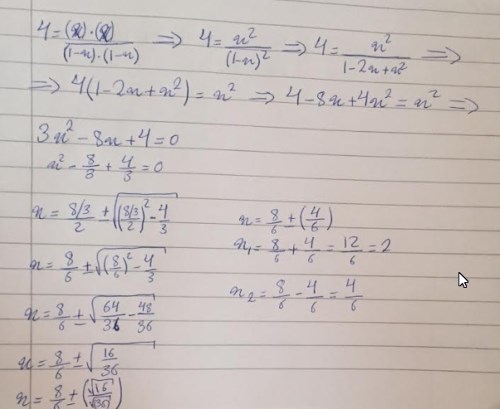 4 = (x)·(x) / (1-x)·(1-x) ⇒ 4 = x² / (1-x)² ⇒ 4 = x² / 1-2x+x² ⇒
⇒ 4(1-2x+x²) = x² ⇒ 4-8x+4x² = x² ⇒
3x² - 8x + 4 = 0
x² - 8/3 + 4/3 = 0
x = 8/3 / 2 ± √((8/3 / 2)² - 4/3)
x = 8/6 ± √((8/6)² - 4/3)
x = 8/6 ± √(64/36 - 48/36)
x = 8/6 ± √(16/36)
x = 8/6 ± (√16/√36)
x = 8/6 ± (4/6)
x₁ = 8/6 + 4/6 = 12/6 = 2
x₂ = 8/6 - 4/6 = 4/6